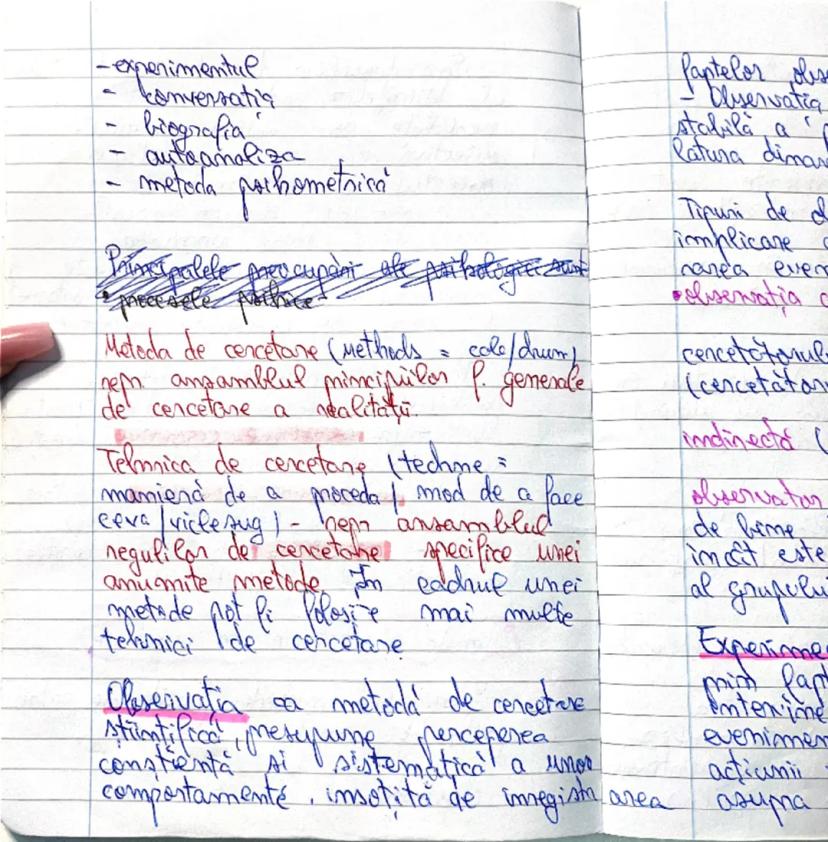 -experimentul
- conversația
- biografia
- autoanaliza
- metoda psihometrică
Principalele preocupări ale psihologiei sunt
• procesele psihice
Metoda de cercetare (methods = cale/drum)
repr. ansamblul principiilor f. generale
de cercetare a realității.
Tehnica de cercetare (techne =
manieră de a proceda/ mod de a face
ceva/vicleșug) - repr ansamblul
regulilor de cercetare specifice unei
anumite metode. În cadrul unei
metode pot fi folosite mai multe
tehnici de cercetare
Observația ca metodă de cercetare
științifică, presupune perceperea
conștientă si sistematică a unor
comportamente, însoțită de înregistrarea
faptelor obse
- Observația
stabilă a
latura dinam
Tipuri de o
implicare
narea even
• observația
cercetătorul
(cercetător
indirectă (
observator
de bine
încât este
al grupului
Experime
prin fapt
intervine
evenimen
acțiunii
asupra